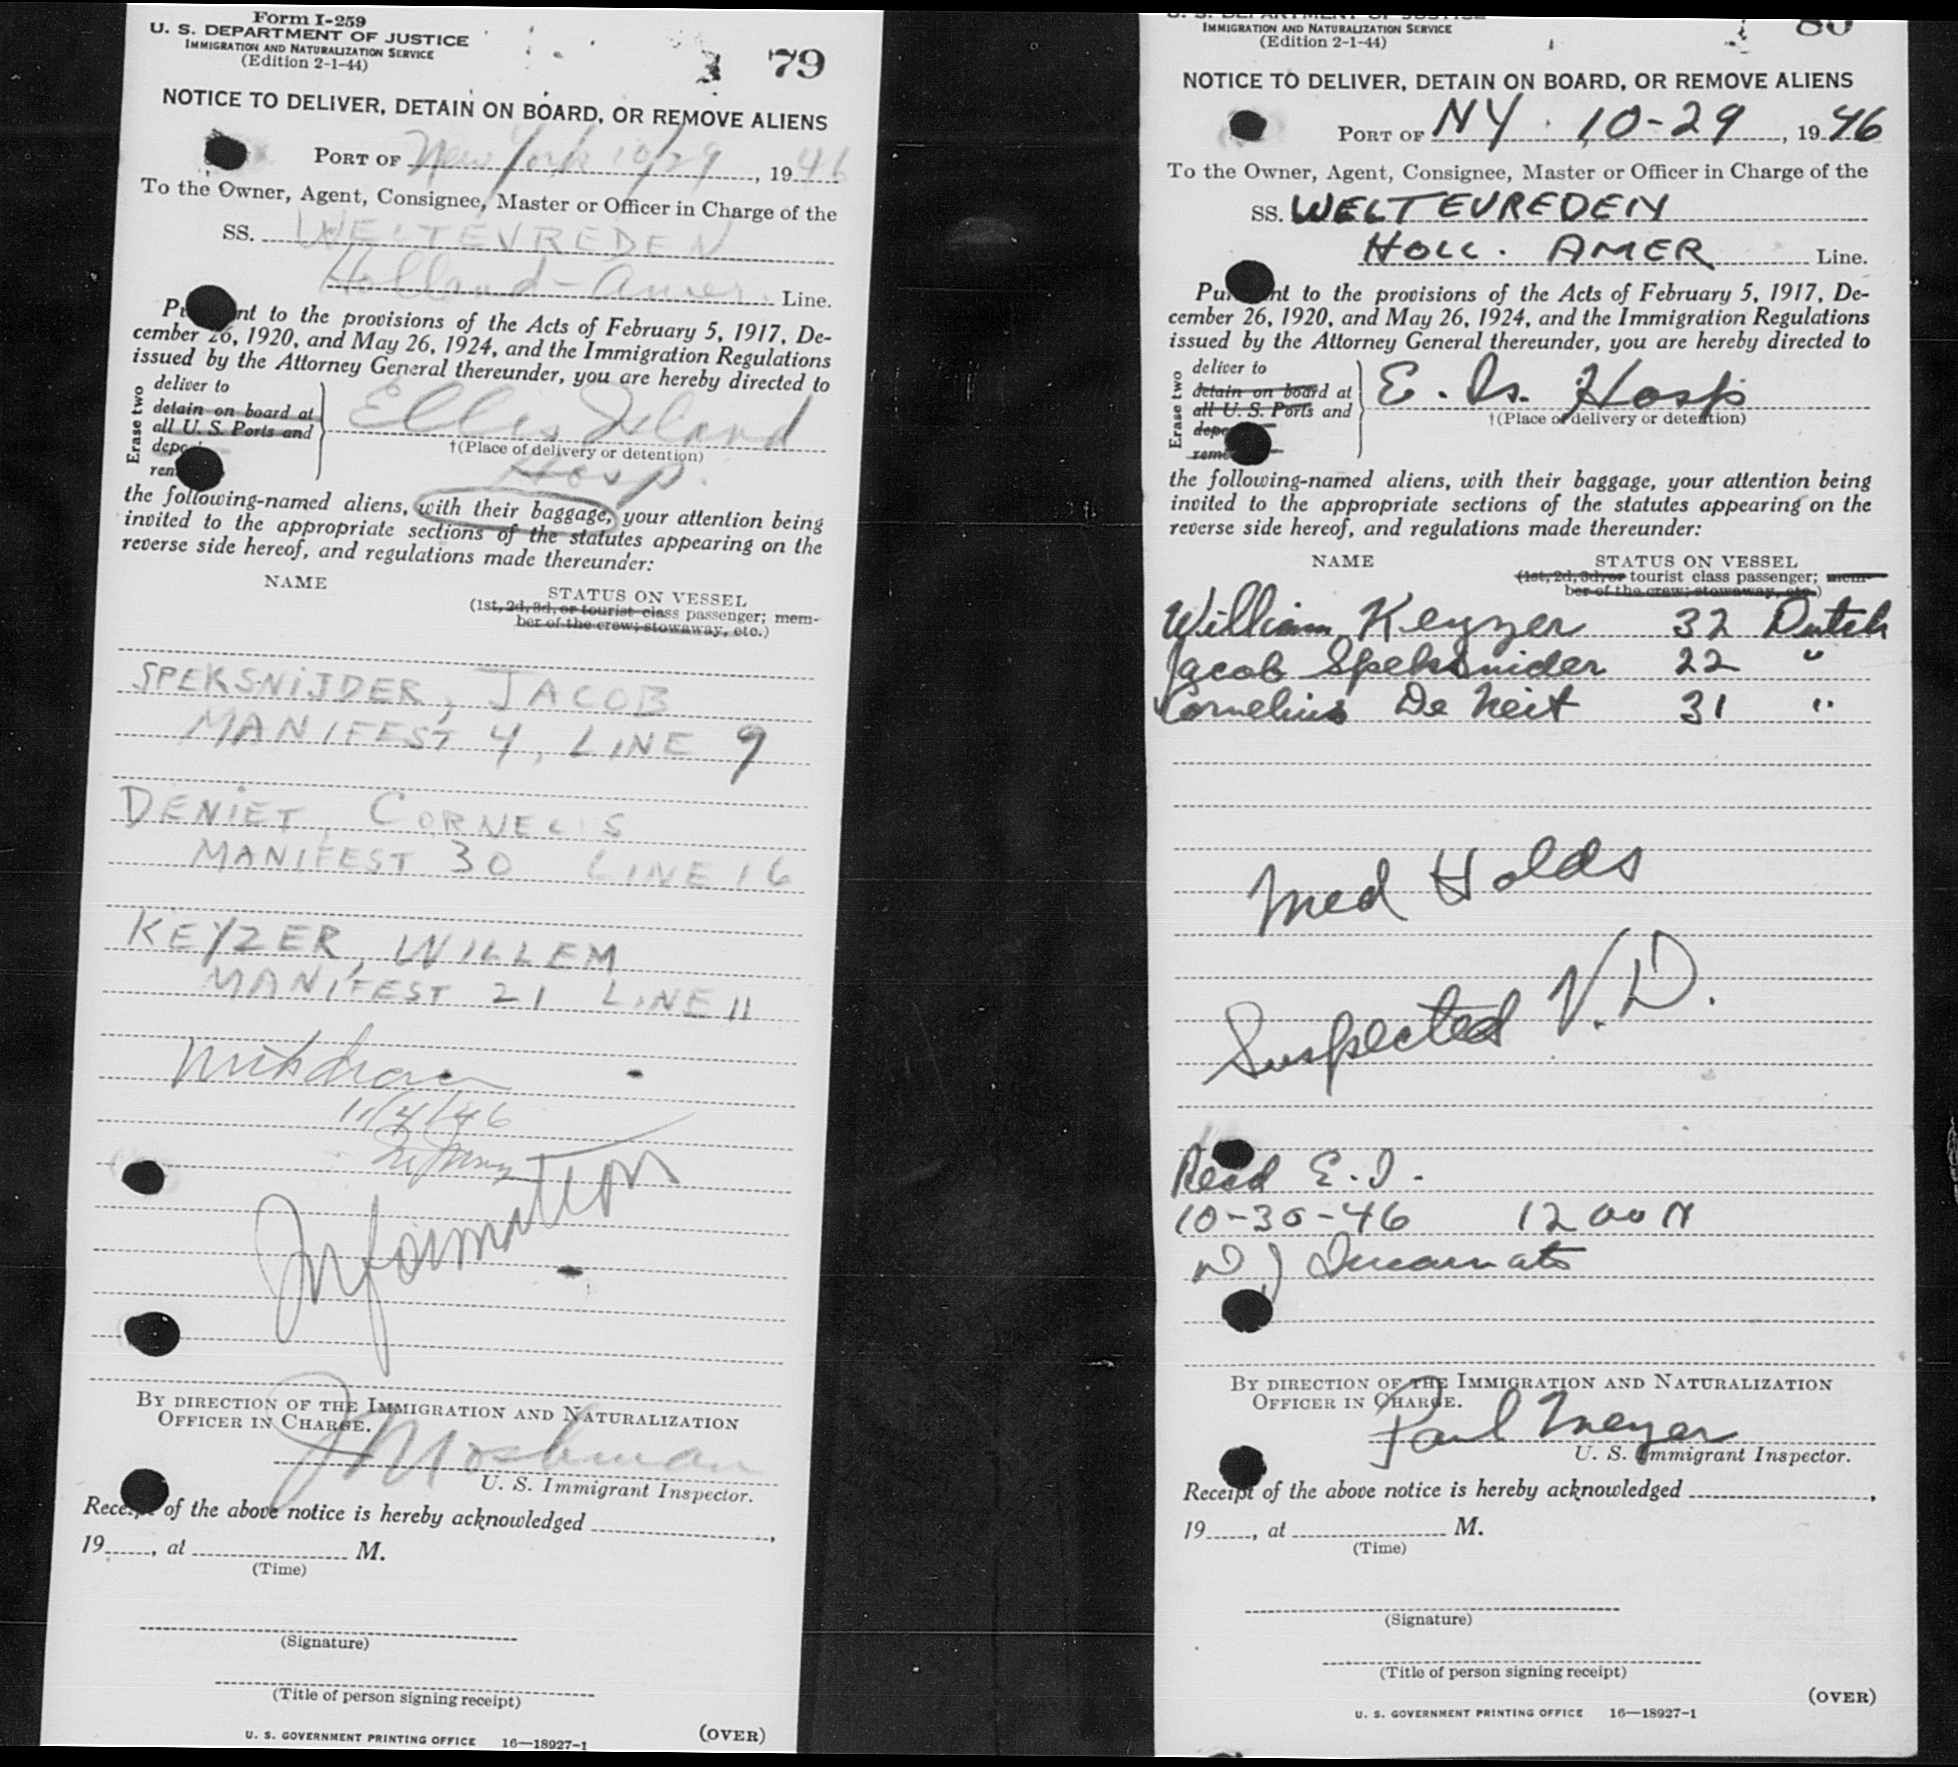 Form I-259
U. S. DEPARTMENT OF JUSTICE
IMMIGRATION AND NATURALIZATION SERVICE
(Edition 2-1-44)
79
NOTICE TO DELIVER, DETAIN ON BOARD, OR REMOVE ALIENS
PORT OF New York 10/29, 1946
To the Owner, Agent, Consignee, Master or Officer in Charge of the
SS. WELTEVREDEN
Holland-Amer. Line.
nt to the provisions of the Acts of February 5, 1917, De-
cember 26, 1920, and May 26, 1924, and the Immigration Regulations
issued by the Attorney General thereunder, you are hereby directed to
Erase two
deliver to
detain on board at
all U. S. Ports and
Ellis Island
†(Place of delivery or detention)
Hosp.
the following-named aliens, with their baggage, your attention being
invited to the appropriate sections of the statutes appearing on the
reverse side hereof, and regulations made thereunder:
NAME
STATUS ON VESSEL
(1st, 2d, 3d, or tourist class passenger; mem-
ber of the crew; stowaway, etc.)
SPEKSNIJDER, JACOB
MANIFEST 4, LINE 9
DENIET, CORNELIS
MANIFEST 30 LINE 16
KEYZER, WILLEM
MANIFEST 21 LINE 11
11/4/46
Information
BY DIRECTION OF THE IMMIGRATION AND NATURALIZATION
OFFICER IN CHARGE.
J Moshman
U. S. Immigrant Inspector.
Receipt of the above notice is hereby acknowledged
19, at M.
(Time)
(Signature)
(Title of person signing receipt)
(OVER)
U. S. GOVERNMENT PRINTING OFFICE 16—18927-1
U. S. DEPARTMENT OF JUSTICE
IMMIGRATION AND NATURALIZATION SERVICE
(Edition 2-1-44)
80
NOTICE TO DELIVER, DETAIN ON BOARD, OR REMOVE ALIENS
PORT OF NY. 10-29, 1946
To the Owner, Agent, Consignee, Master or Officer in Charge of the
SS. WELTEVREDEN
HOLL. AMER Line.
nt to the provisions of the Acts of February 5, 1917, De-
cember 26, 1920, and May 26, 1924, and the Immigration Regulations
issued by the Attorney General thereunder, you are hereby directed to
Erase two
deliver to
detain on board at
all U. S. Ports and
E. Is. Hosp
†(Place of delivery or detention)
the following-named aliens, with their baggage, your attention being
invited to the appropriate sections of the statutes appearing on the
reverse side hereof, and regulations made thereunder:
NAME
STATUS ON VESSEL
(1st, 2d, 3d, or tourist class passenger; mem-
ber of the crew; stowaway, etc.)
William Keyzer 32 Dutch
Jacob Speksnider 22 "
Cornelius De Neit 31 "
Med Holds
Suspected V.D.
Recd E.I.
10-30-46 12 00 N
BY DIRECTION OF THE IMMIGRATION AND NATURALIZATION
OFFICER IN CHARGE.
Paul Meyer
U. S. Immigrant Inspector.
Receipt of the above notice is hereby acknowledged
19, at M.
(Time)
(Signature)
(Title of person signing receipt)
(OVER)
U. S. GOVERNMENT PRINTING OFFICE 16—18927-1